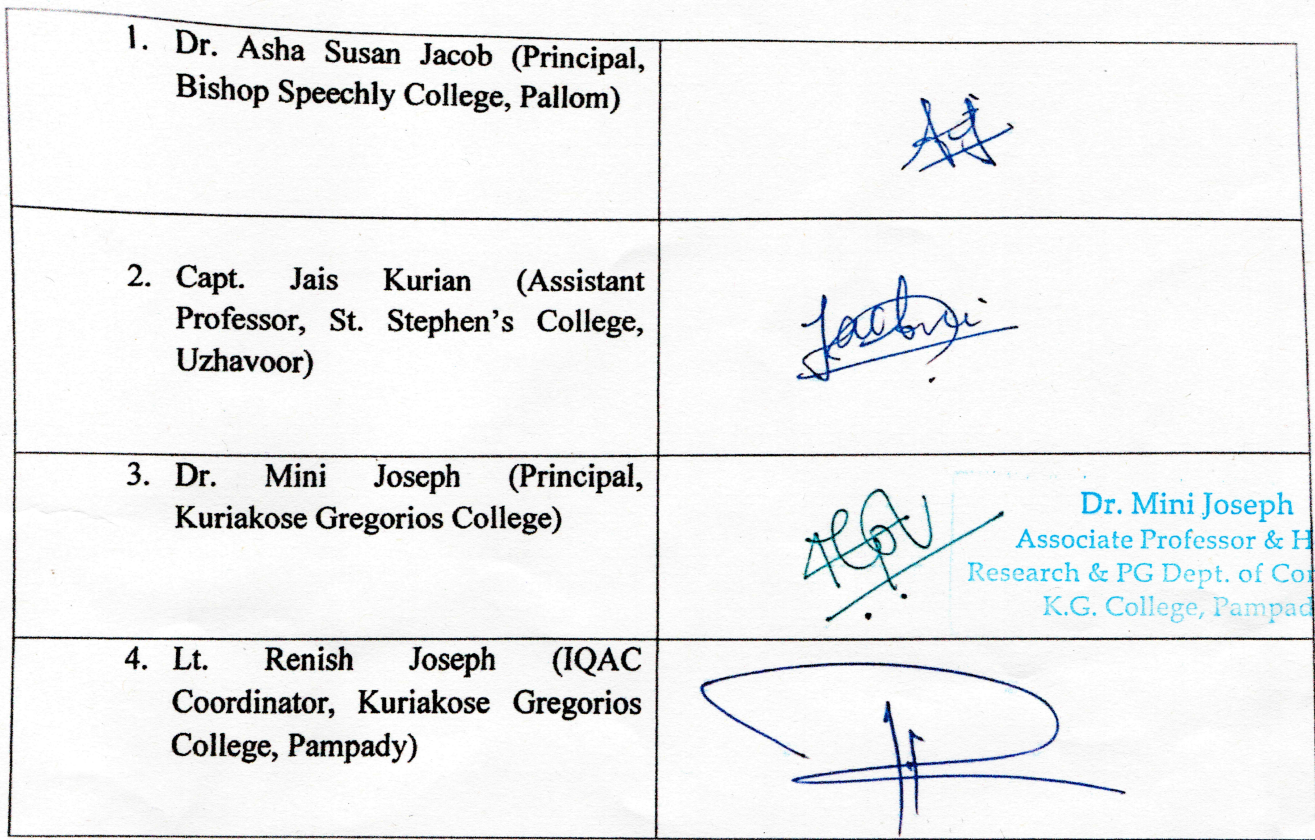 1. Dr. Asha Susan Jacob (Principal,
Bishop Speechly College, Pallom)
2. Capt. Jais Kurian (Assistant
Professor, St. Stephen's College,
Uzhavoor)
3. Dr. Mini Joseph (Principal,
Kuriakose Gregorios College)
Dr. Mini Joseph
Associate Professor & H
Research & PG Dept. of Co
K.G. College, Pampad
4. Lt. Renish Joseph (IQAC
Coordinator, Kuriakose Gregorios
College, Pampady)